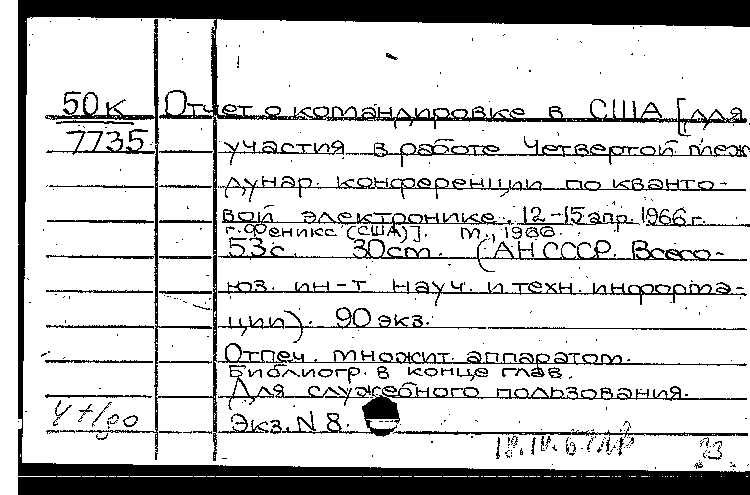 50к Отчет о командировке в США [для
7735 участия в работе Четвертой меж
дунар. конференции по кванто-
вой электронике. 12-15 апр. 1966 г.
г. Феникс (США)]. М., 1966.
53 с. 30 см. (АН СССР. Всесо-
юз. ин-т науч. и техн. информа-
ции). 90 экз.
Отпеч. множит. аппаратом.
Библиогр. в конце глав.
Для служебного пользования.
Экз. N 8.